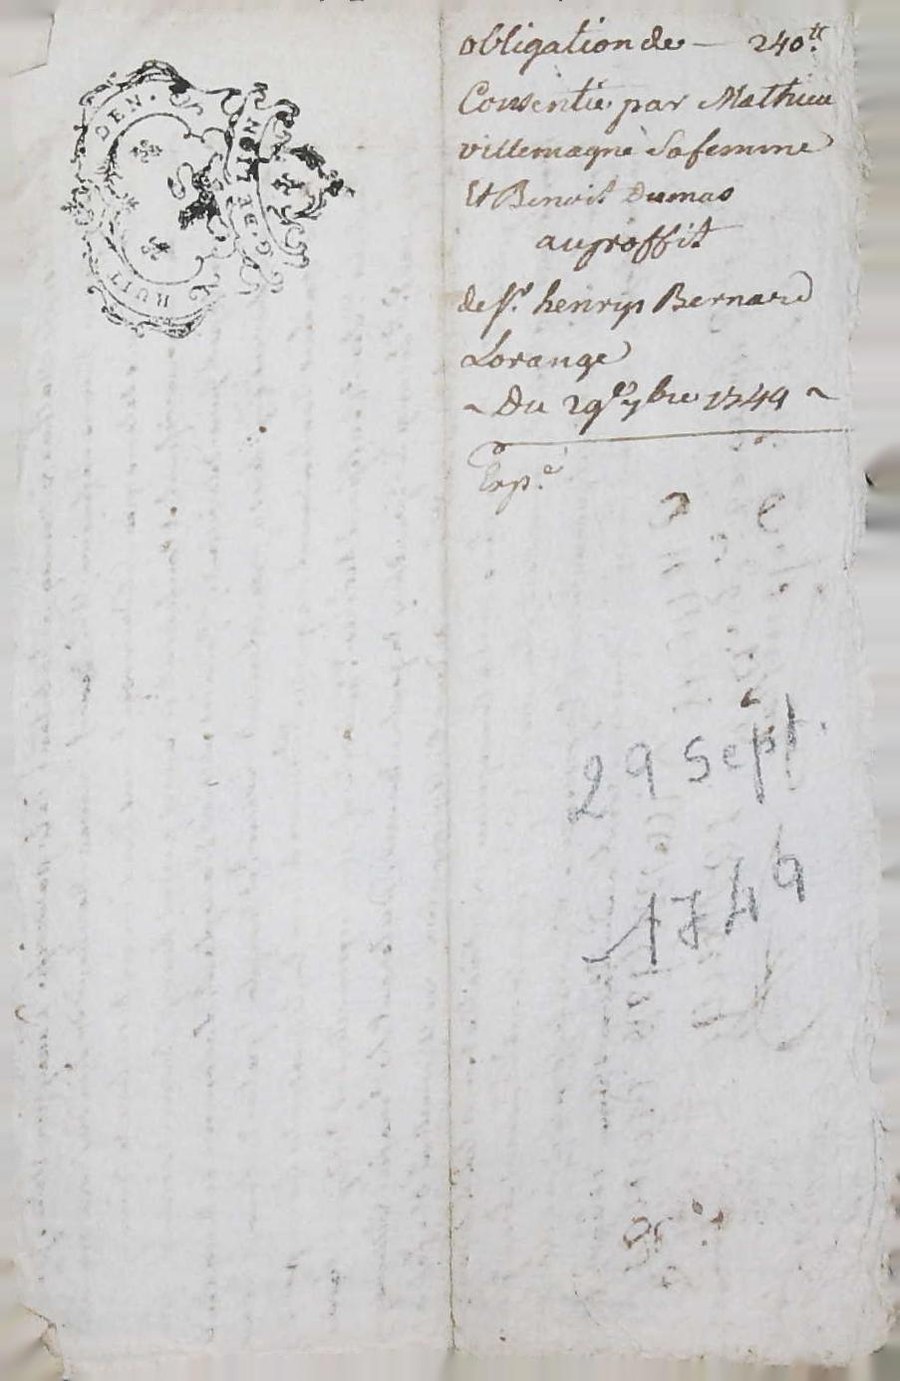 obligation de — 240tt.
Consentie par Mathieu
villemagne Sa femme
Et Benoit Dumas
au proffit
de Sr. henrys Bernard
Lorange
~ Du 29e 7bre 1749 ~
Exp.é
29 Sept.
1749
G. DE LION
DEN.
HUIT